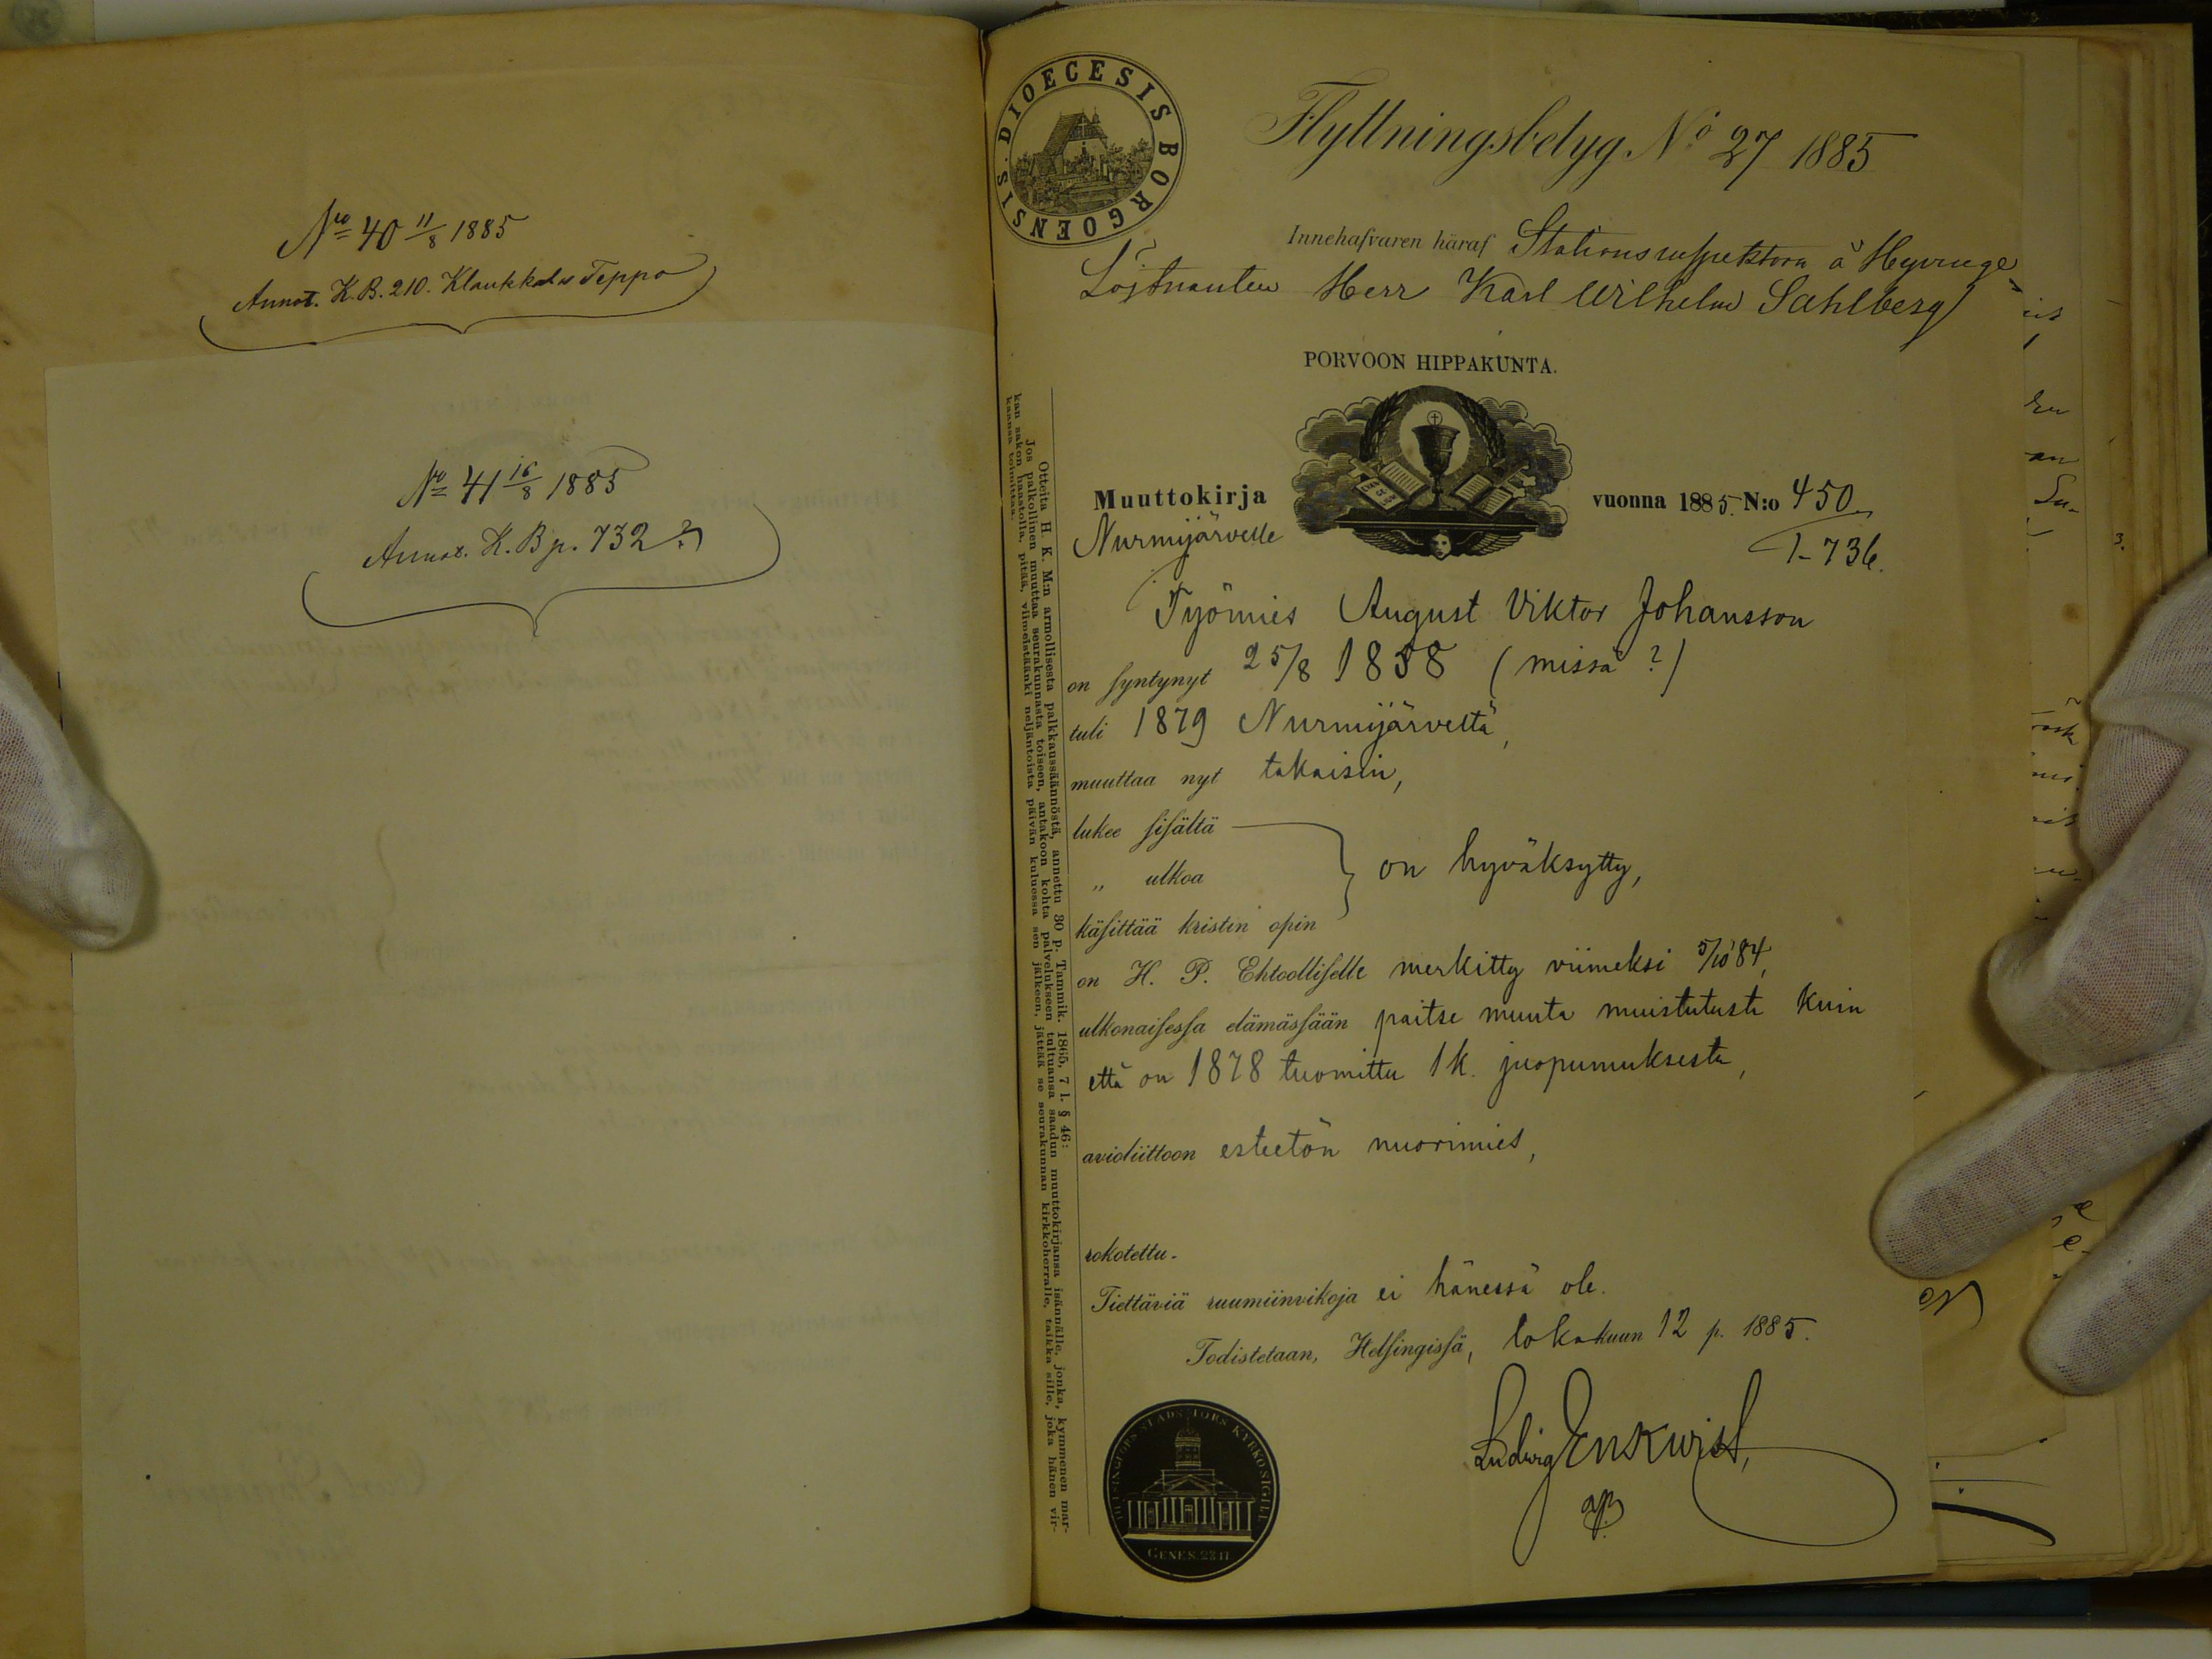 No 40 11/8 1885
Annot. K.B. 210. Klaukkala Teppo
No 41 16/8 1885
Annot. K.B p. 732
DIOECESIS BORGOENSIS.
Flyttningsbetyg No 27 1885
Innehafvaren häraf Stationsinspektorn å Hyvinge
Löjtnanten Herr Karl Wilhelm Sahlberg
PORVOON HIPPAKUNTA.
Muuttokirja vuonna 1885. N:o 450.
Nurmijärvelle 1-736.
Työmies August Viktor Johansson
on syntynyt 25/8 1858 (missä?)
tuli 1879 Nurmijärveltä,
muuttaa nyt takaisin,
lukee sisältä
„ ulkoa on hyväksytty,
käsittää kristin opin
on H. P. Ehtoolliselle merkitty viimeksi 5/10 84,
ulkonaisessa elämässään paitse muuta muistutusta kuin
että on 1878 tuomittu 1 k. juopumuksesta,
avioliittoon esteetön nuorimies,
rokotettu.
Tiettäviä ruumiinvikoja ei hänessä ole.
Todistetaan, Helsingissä, lokakuun 12 p. 1885.
Ludvig Enkvist,
Otteita H. K. M:n armollisesta palkkaussäännöstä, annettu 30 p. Tammik. 1865, 7 l. § 46:
Jos palkollinen muuttaa seurakunnasta toiseen, antakoon kohta palvelukseen tultuansa saadun muuttokirjansa isännälle, jonka, kymmenen mar-
kan sakon haastolla, pitää, viimeistäänki neljäntoista päivän kuluessa sen jälkeen, jättää se seurakunnan kirkkoherralle, taikka sille, joka hänen vir-
kaansa toimittaa.
HELSINGFORS STADS KYRKO SIGILL
GENES. 28 17